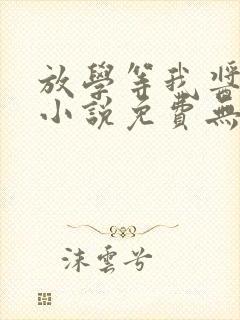 放學等我醬
小說免費無
沫雲兮